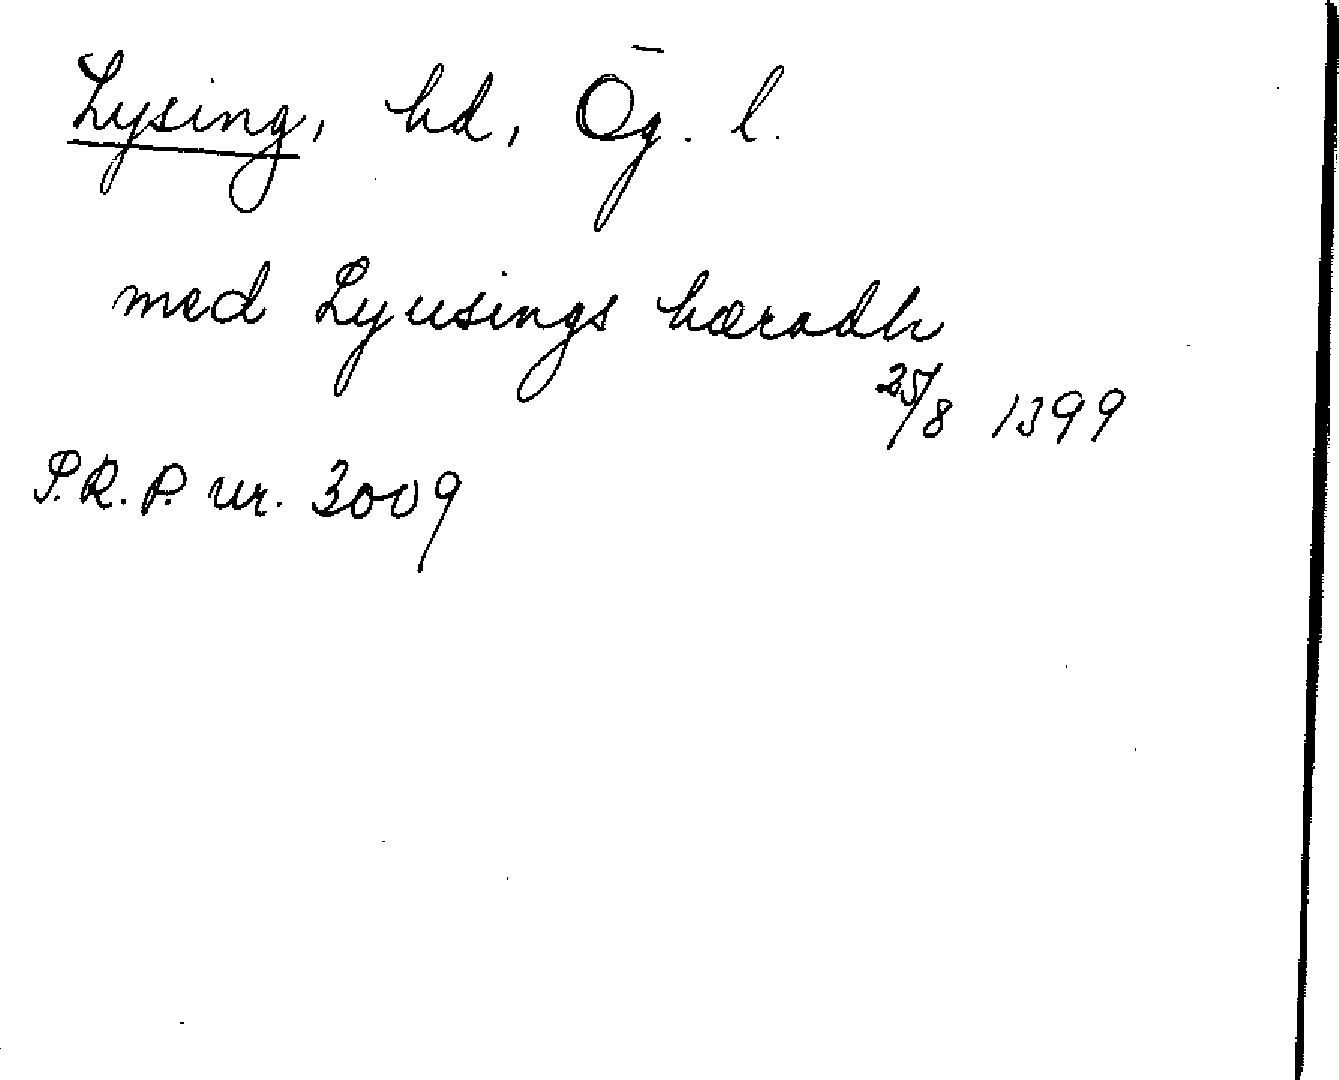 Lysing, hd, Ög. l.
med Lyusings hæradh
25/8 1399
P.R.P. nr. 3009